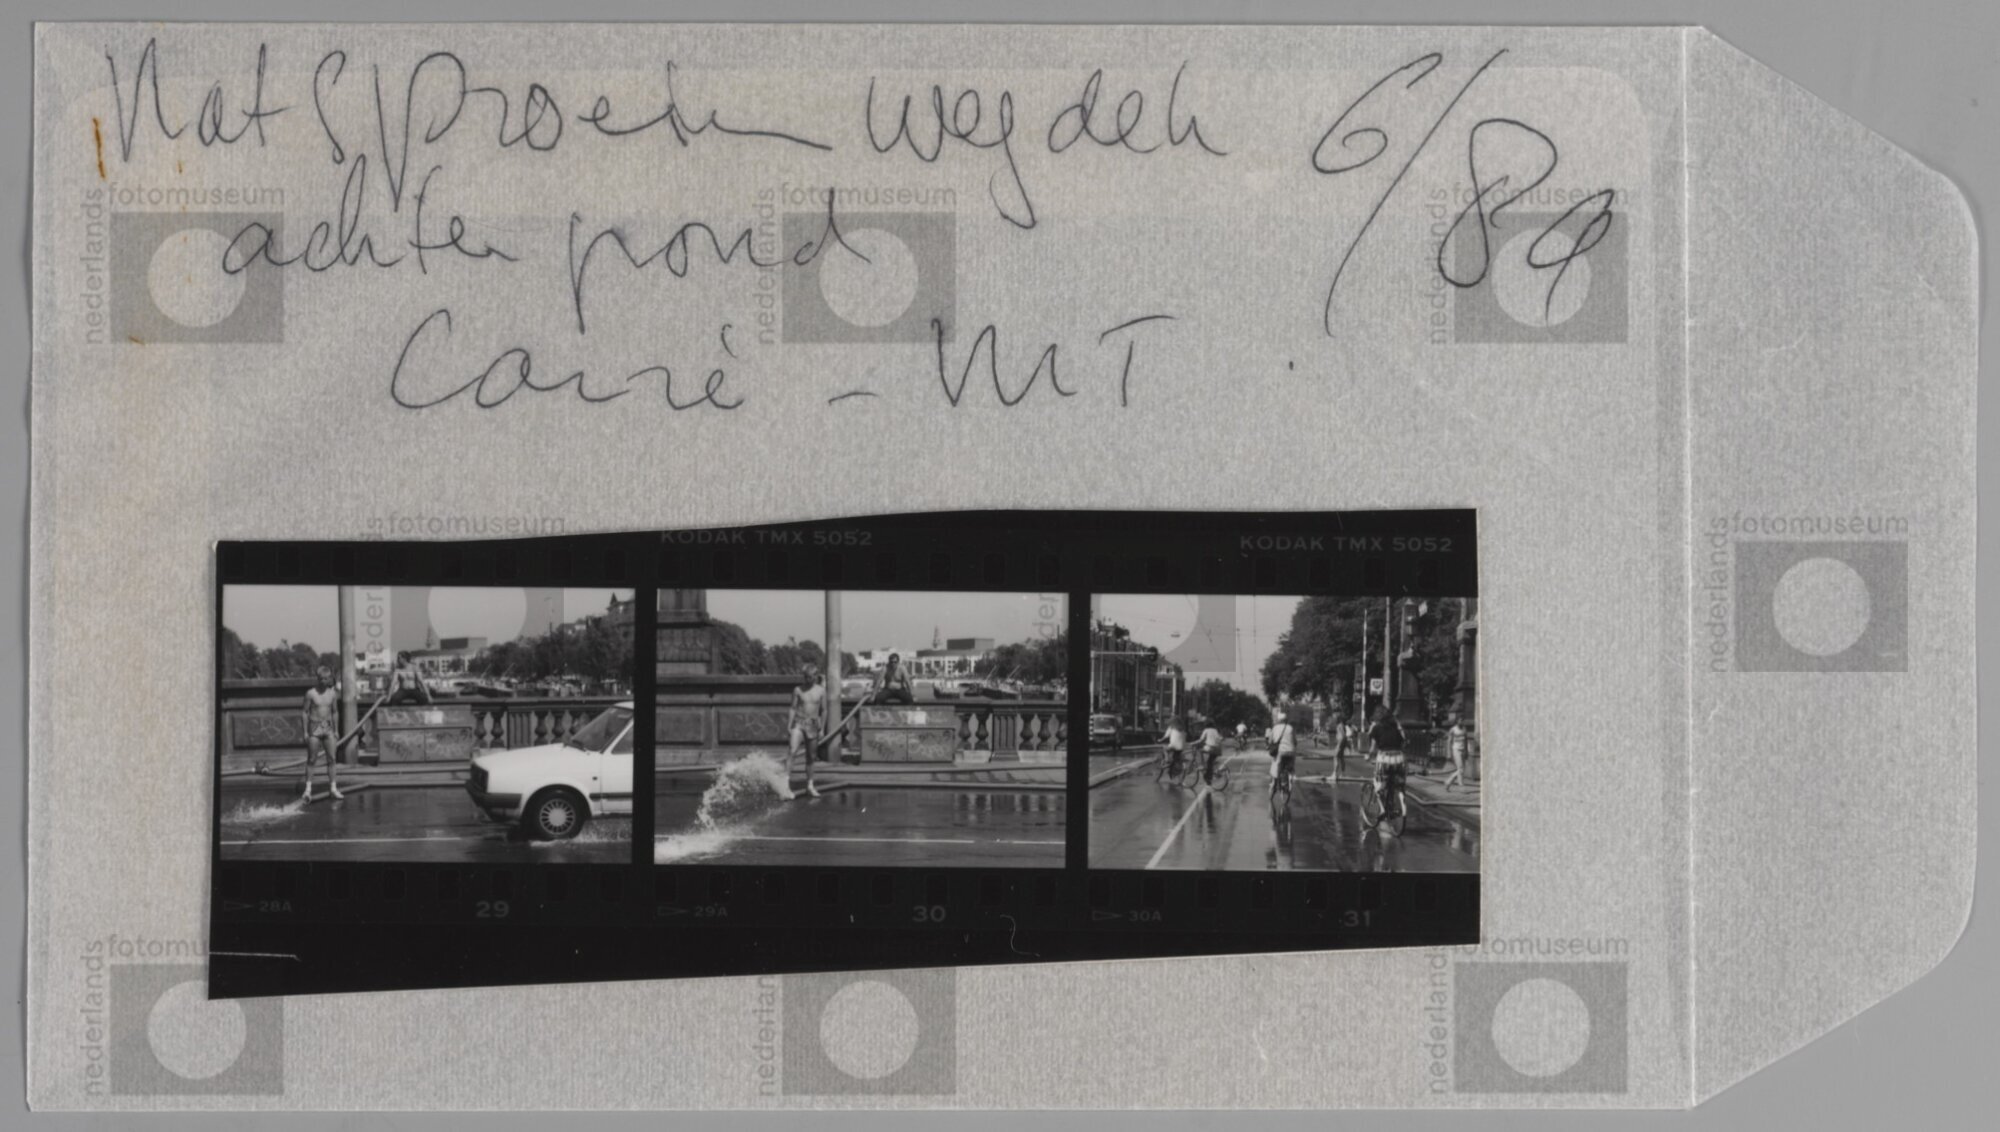 Nat Sproeien wegdek 6/89
achtergrond
Carré - MT
nederlands fotomuseum
nederlands fotomuseum
nederlands fotomuseum
nederlands fotomuseum
nederlands fotomuseum
KODAK TMX 5052
KODAK TMX 5052
28A 29 29A 30 30A 31
nederlands fotomu
nederlands
nederlands fotomuseum